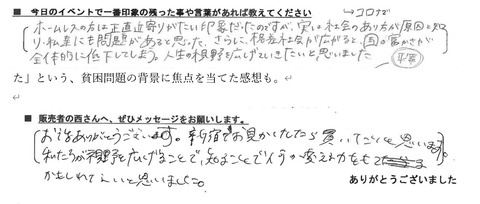 ■ 今日のイベントで一番印象の残った事や言葉があれば教えてください
→コロナで
ホームレスの方は正直近寄りがたい印象だったのですが、実は社会のあり方が原因と知
り、私達にも問題があると思った。さらに、格差社会が広がると、国の豊かさが
全体的に低下してしまう。人生の視野を広げていきたいと思いました
平等
た」という、貧困問題の背景に焦点を当てた感想も。
■ 販売者の西さんへ、ぜひメッセージをお願いします。
お話ありがとうございます。新宿でお見かけしたら買いに行こうと思います。
私たちが視野を広げることで、知ることで人々が変える力をもて
かもしれないと思いました。
ありがとうございました